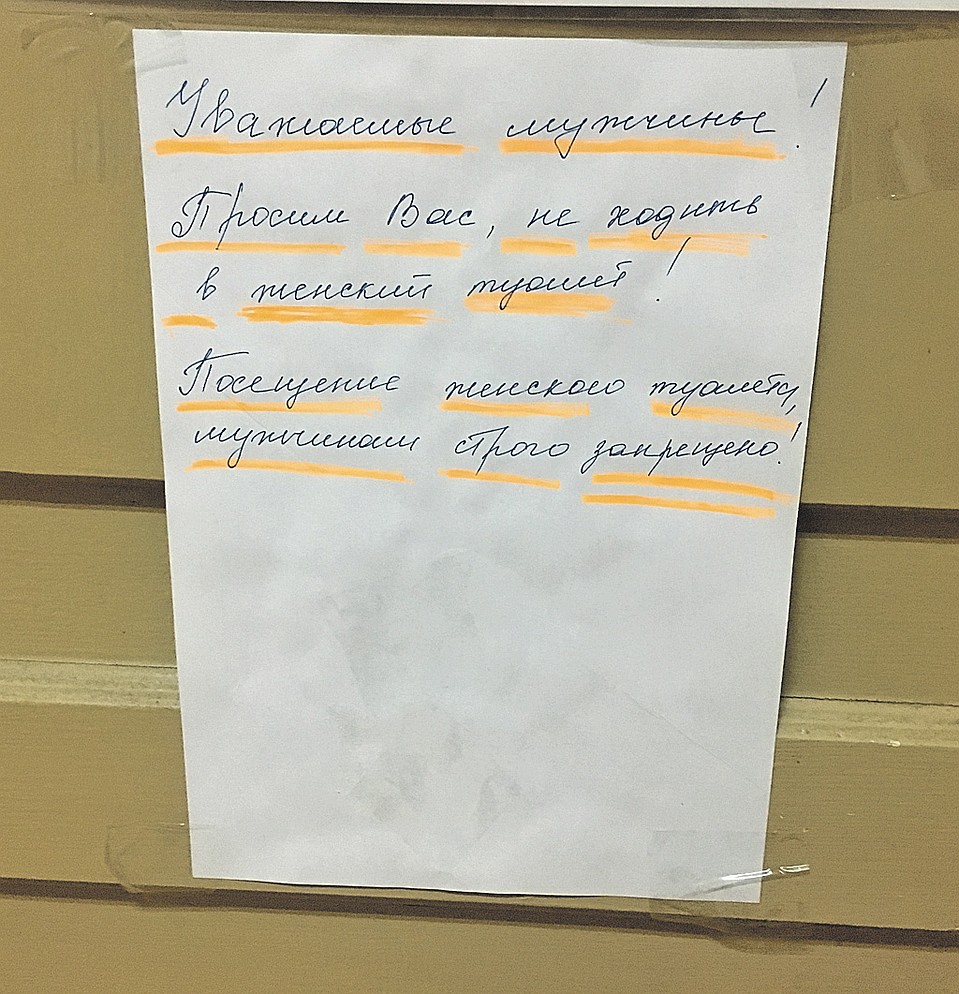 Уважаемые мужчины!
Просим Вас, не ходить
в женский туалет!
Посещение женского туалета,
мужчинам строго запрещено!